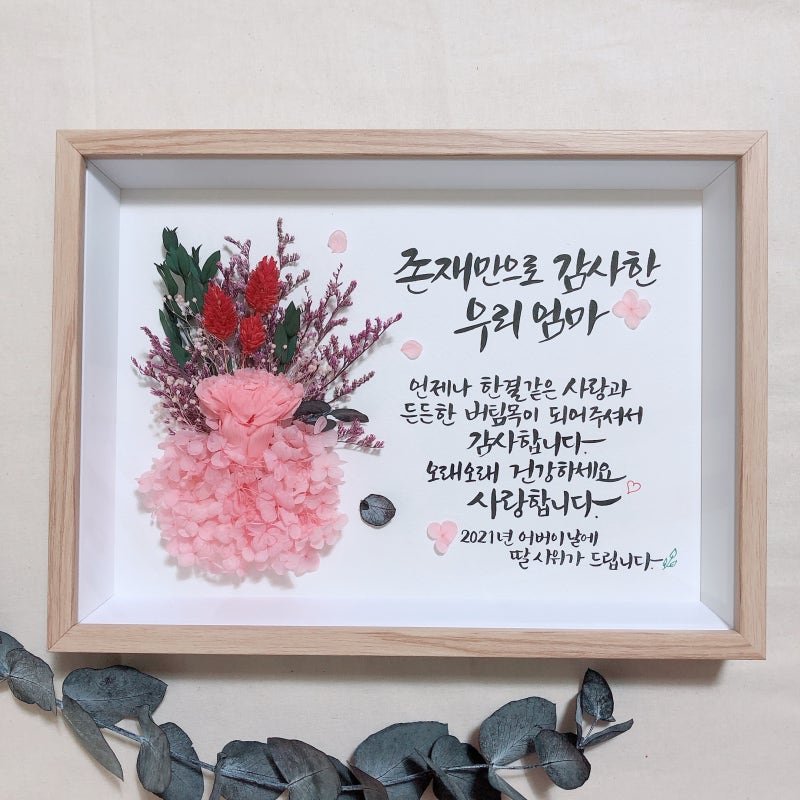 존재만으로 감사한
우리 엄마
언제나 한결같은 사랑과
든든한 버팀목이 되어주셔서
감사합니다
오래오래 건강하세요
사랑합니다
2021년 어버이날에
딸 사위가 드립니다